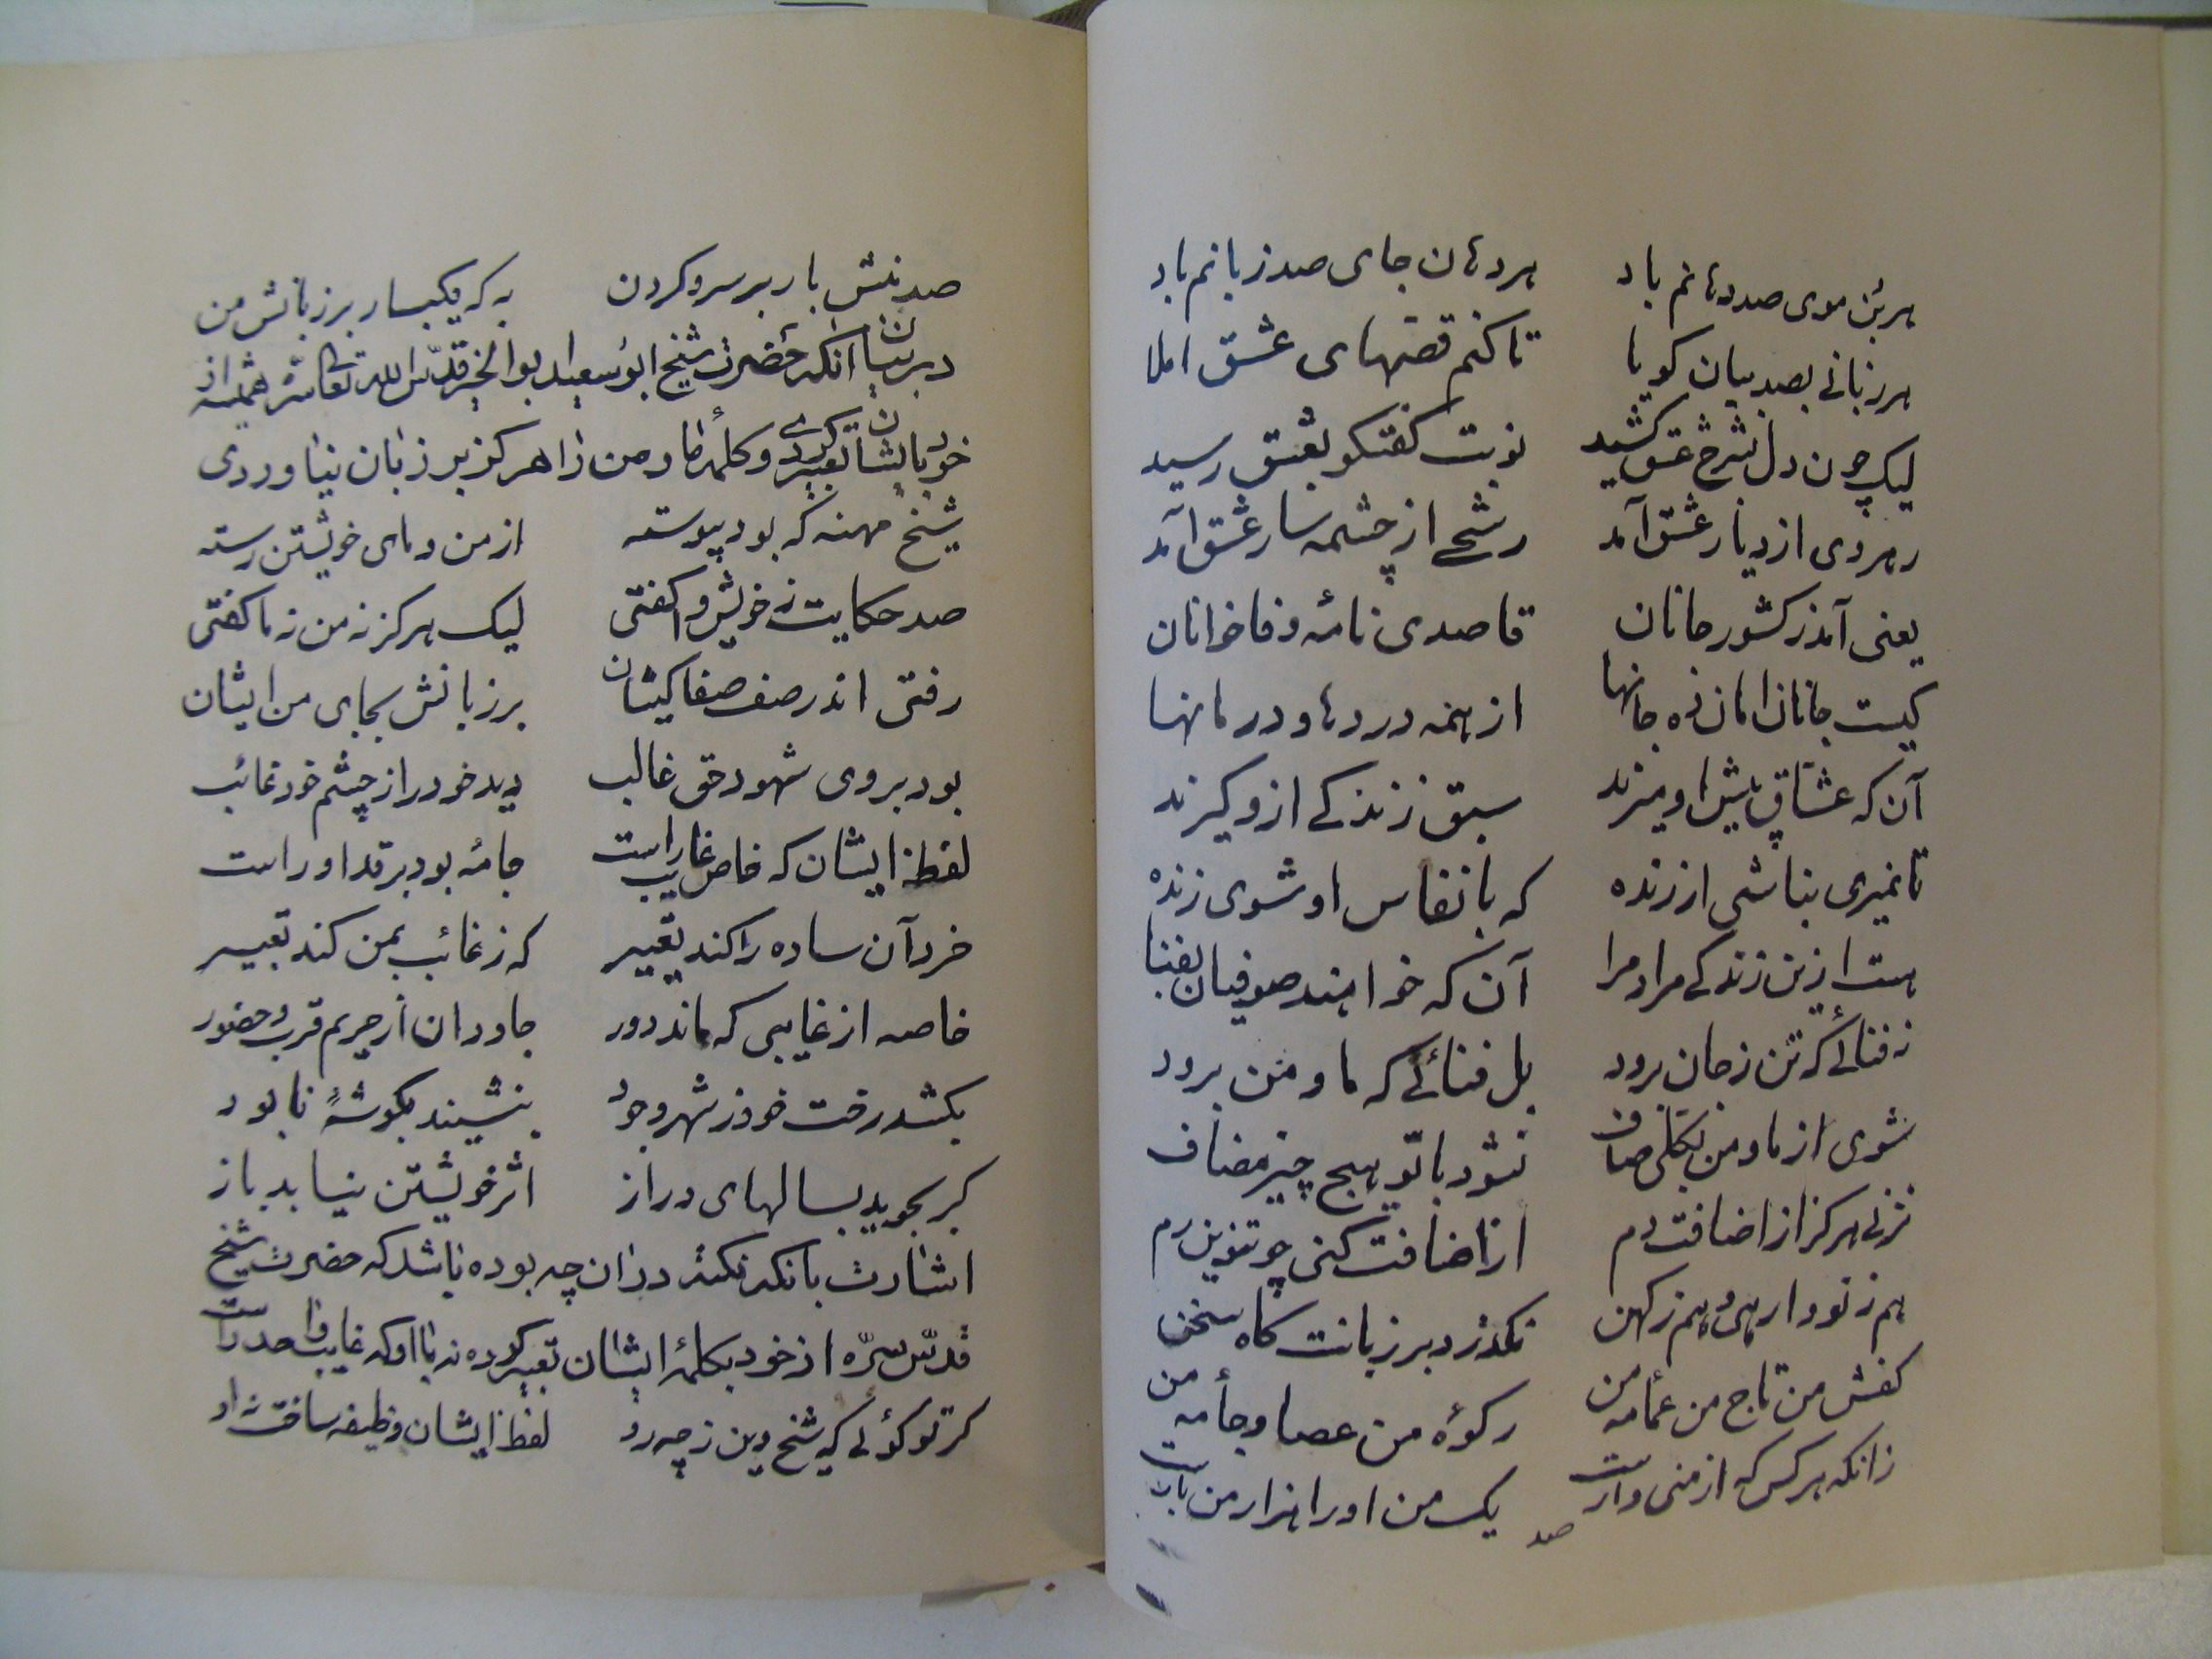 هر بن موی صد دهانم باد هر دهان جای صد زبانم باد
هر زبانی بصد بیان کویا تا کنم قصهای عشق املا
لیک چون دل بشرح عشق کشید نوبت کفتکو بعشق رسید
رهروی از دیار عشق آمد رشحے از چشمه سار عشق آمد
یعنی آمد ز کشور جانان قاصدی نامۀ وفا خوانان
کیست جانان امان ده جانها از همه دردها و درمانها
آن که عشاق پیش او میرند سبق زندکے ازو کیرند
تا نمیری نباشی ارزنده که بانفاس او شوی زنده
هست ازین زندکے مراد مرا آن که خوانند صوفیان بفنا
نه فنائے که تن ز جان برود بل فنائے که ما و من برود
شوی از ما و من بکلی صاف نشود با تو هیچ چیز مضاف
نزنے هرکز از اضافت دم از اضافت کنی چو تنوین رم
هم ز نو وارهی و هم ز کهن نکذرد بر زبانت کاه سخن
کفش من تاج من عمامه من رکوۀ من عصا و جامه من
زانکه هر کس که از منی وارست یک من او را هزار من بارست
صد
صد منش بار بر سر و کردن به که یکبار بر زبانش من
در بیان آنکه حضرت شیخ ابو سعید ابو الخیر قدّس الله تعالی سره همیشه از
خود بایشان تعبیر کردے و کلمه ما و من را هرکز بر زبان نیاوردی
شیخ مهنه که بود پیوسته از من و مای خویشتن رسته
صد حکایت ز خویش واکفتی لیک هرکز نه من نه ما کفتی
رفتی اندر صف صفا کیشان بر زبانش بجای من ایشان
بود بر وی شهود حق غالب دید خود را ز چشم خود غائب
لفظ ایشان که خاص غایب راست جامۀ بود بر قد او راست
خرد آن ساده را کند تغییر که ز غائب بمن کند تعبیر
خاصه از غایبی که ماند دور جاودان از حریم قرب و حضور
بکشد رخت خود ز شهر وجود بنشیند بکوشۀ نابود
کر بجوید بسالهای دراز اثر خویشتن نیابد باز
اشارت بانکه نکته دران چه بوده باشد که حضرت شیخ
قدّس سرّه از خود بکلمۀ ایشان تعبیر کرده نه با او که غایب واحد راست
کر تو کوئے که شیخ دین ز چه رو لفظ ایشان وظیفه ساخت نه او